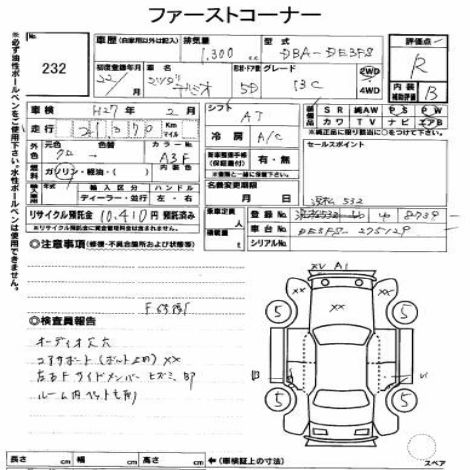 ファーストコーナー
※必ず油性ボールペンをご使用下さい。水性ボールペンは使用できません。
232
車歴 (自家用以外は記入)
排気量 1,300 cc
型式 DBA-DE3FS
評価点 R
初度登録年月 22/ 月
車名 マツダ デミオ
形状・ドア数 5D
グレード 13C
2WD
4WD
内装補助評価 B
車検 H27年 2月
シフト AT
装備品 SR 純AW PS PW
カワ TV ナビ エアB
※純正品に限り該当に○をつけて下さい。
走行 21370 Km マイル
冷房 A/C
セールスポイント
外色 元色 クロ 色替
カラーNo. A3F
新車整備手帳(保証書付) 有・無
燃料 ガソリン・軽油・( )
内装色
名義変更期限 月 日
輸入車 輸入区分 ディーラー・並行
ハンドル 左・右
リサイクル預託金 10,410円 預託済み
※リサイクル預託金に資金管理料金は含みません。
乗車定員 名
積載量 t
登録No. 8739
車台No. DE3FS-275129
シリアルNo.
◎注意事項 (修復・不具合箇所および状態等)
F
◎検査員報告
オーディオ欠
コアサポート (ボルト止め) XX
左右Fサイドメンバー ヒズミ、
XX
XX
A1
5
5
5
5
スペア
長さ cm 幅 cm 高さ cm ←(車検証上の寸法)